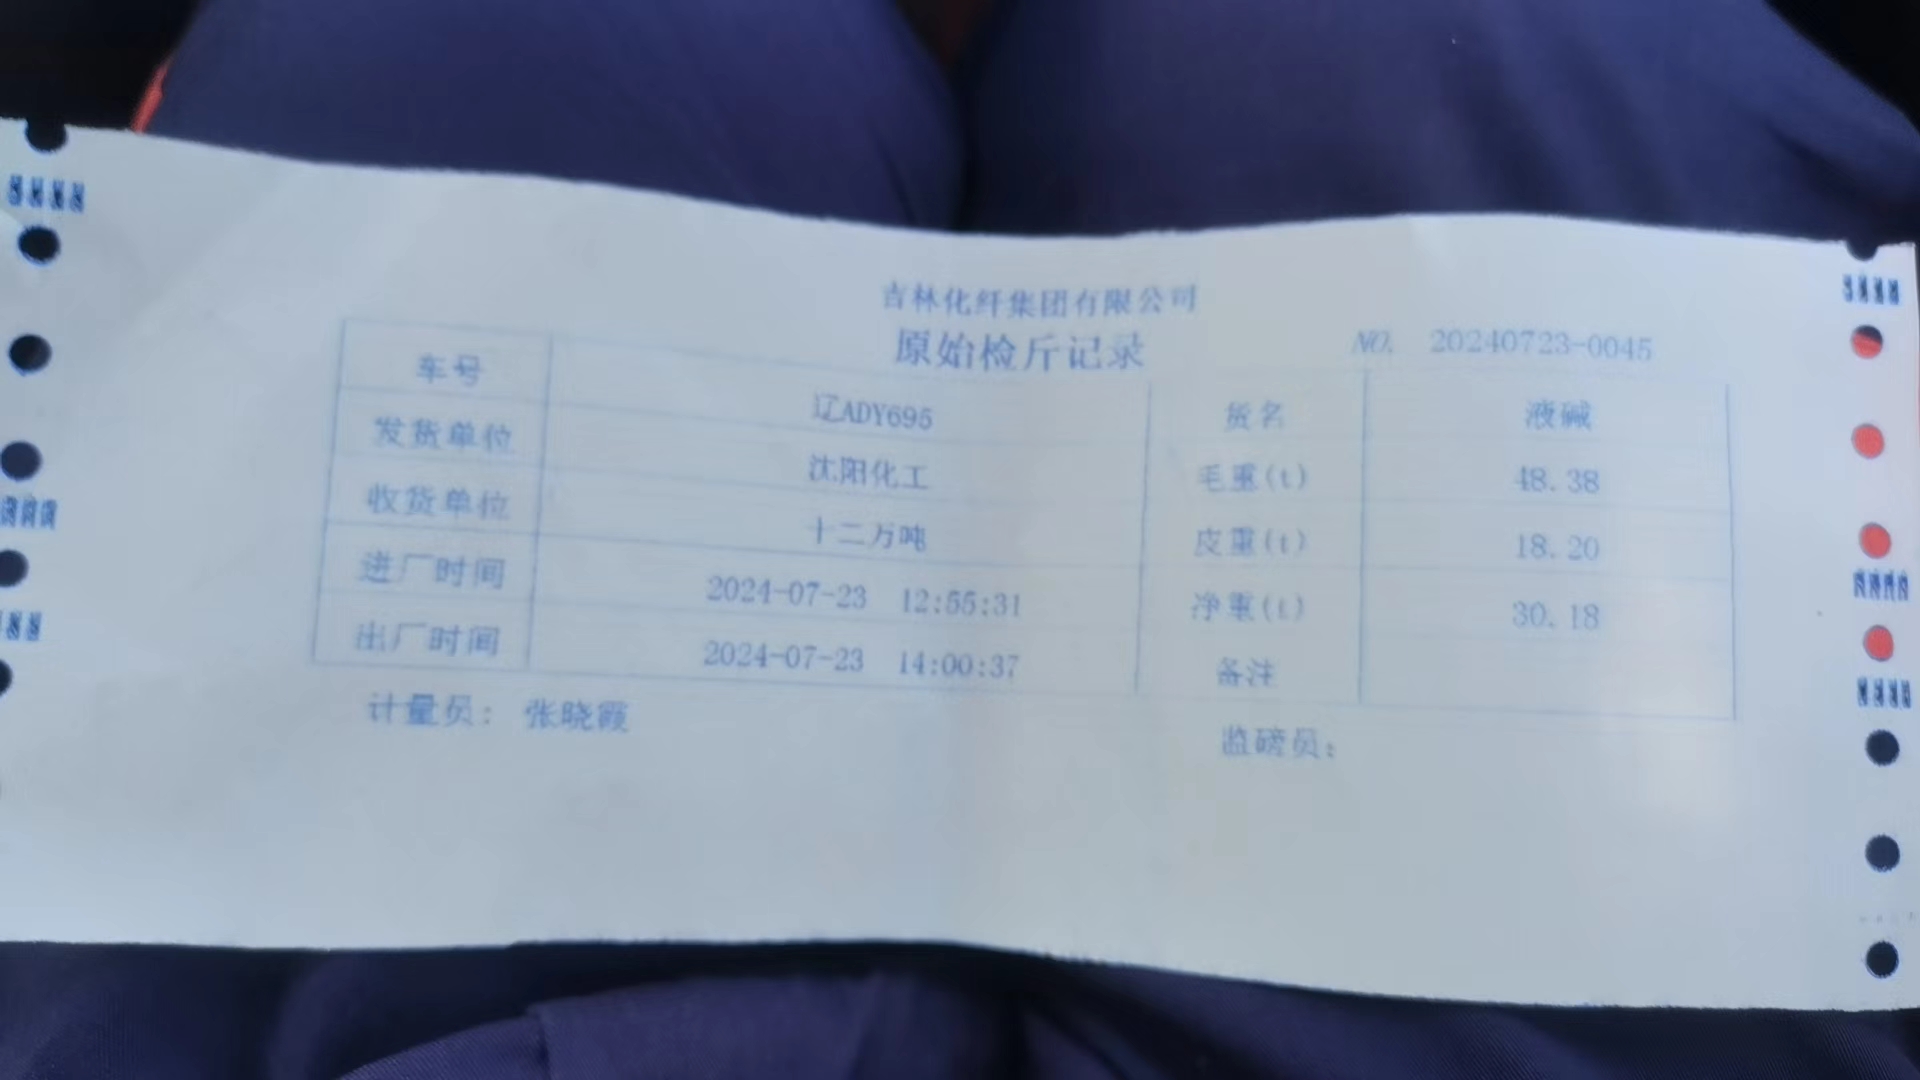 吉林化纤集团有限公司
原始检斤记录
NO. 20240723-0045
车号 辽ADY695 货名 液碱
发货单位 沈阳化工 毛重(t) 48.38
收货单位 十二万吨 皮重(t) 18.20
进厂时间 2024-07-23 12:55:31 净重(t) 30.18
出厂时间 2024-07-23 14:00:37 备注
计量员: 张晓霞 监磅员: